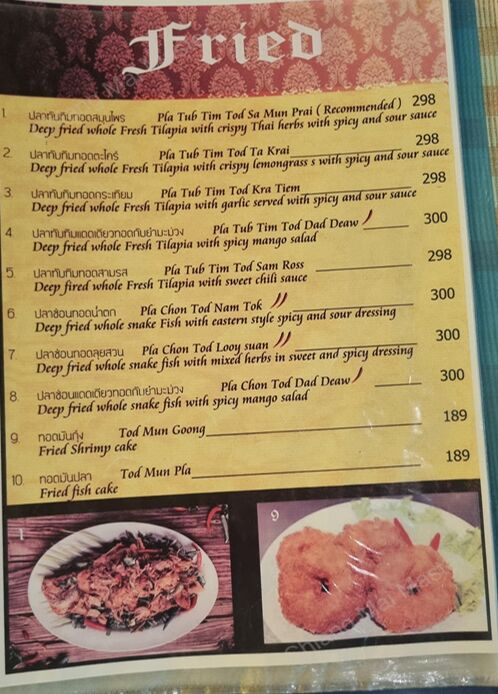 Fried
1. ปลาทับทิมทอดสมุนไพร Pla Tub Tim Tod Sa Mun Prai ( Recommended ) 298
Deep fried whole Fresh Tilapia with crispy Thai herbs with spicy and sour sauce
2. ปลาทับทิมทอดตะไคร้ Pla Tub Tim Tod Ta Krai 298
Deep fried whole Fresh Tilapia with crispy lemongrass s with spicy and sour sauce
3. ปลาทับทิมทอดกระเทียม Pla Tub Tim Tod Kra Tiem 298
Deep fried whole Fresh Tilapia with garlic served with spicy and sour sauce
4. ปลาทับทิมแดดเดียวทอดกับยำมะม่วง Pla Tub Tim Tod Dad Deaw 300
Deep fried whole Fresh Tilapia with spicy mango salad
5. ปลาทับทิมทอดสามรส Pla Tub Tim Tod Sam Ross 298
Deep fired whole Fresh Tilapia with sweet chili sauce
6. ปลาช่อนทอดน้ำตก Pla Chon Tod Nam Tok 300
Deep fried whole snake Fish with eastern style spicy and sour dressing
7. ปลาช่อนทอดลุยสวน Pla Chon Tod Looy suan 300
Deep fried whole snake fish with mixed herbs in sweet and spicy dressing
8. ปลาช่อนแดดเดียวทอดกับยำมะม่วง Pla Chon Tod Dad Deaw 300
Deep fried whole snake fish with spicy mango salad
9. ทอดมันกุ้ง Tod Mun Goong 189
Fried Shrimp cake
10. ทอดมันปลา Tod Mun Pla 189
Fried fish cake
1
9